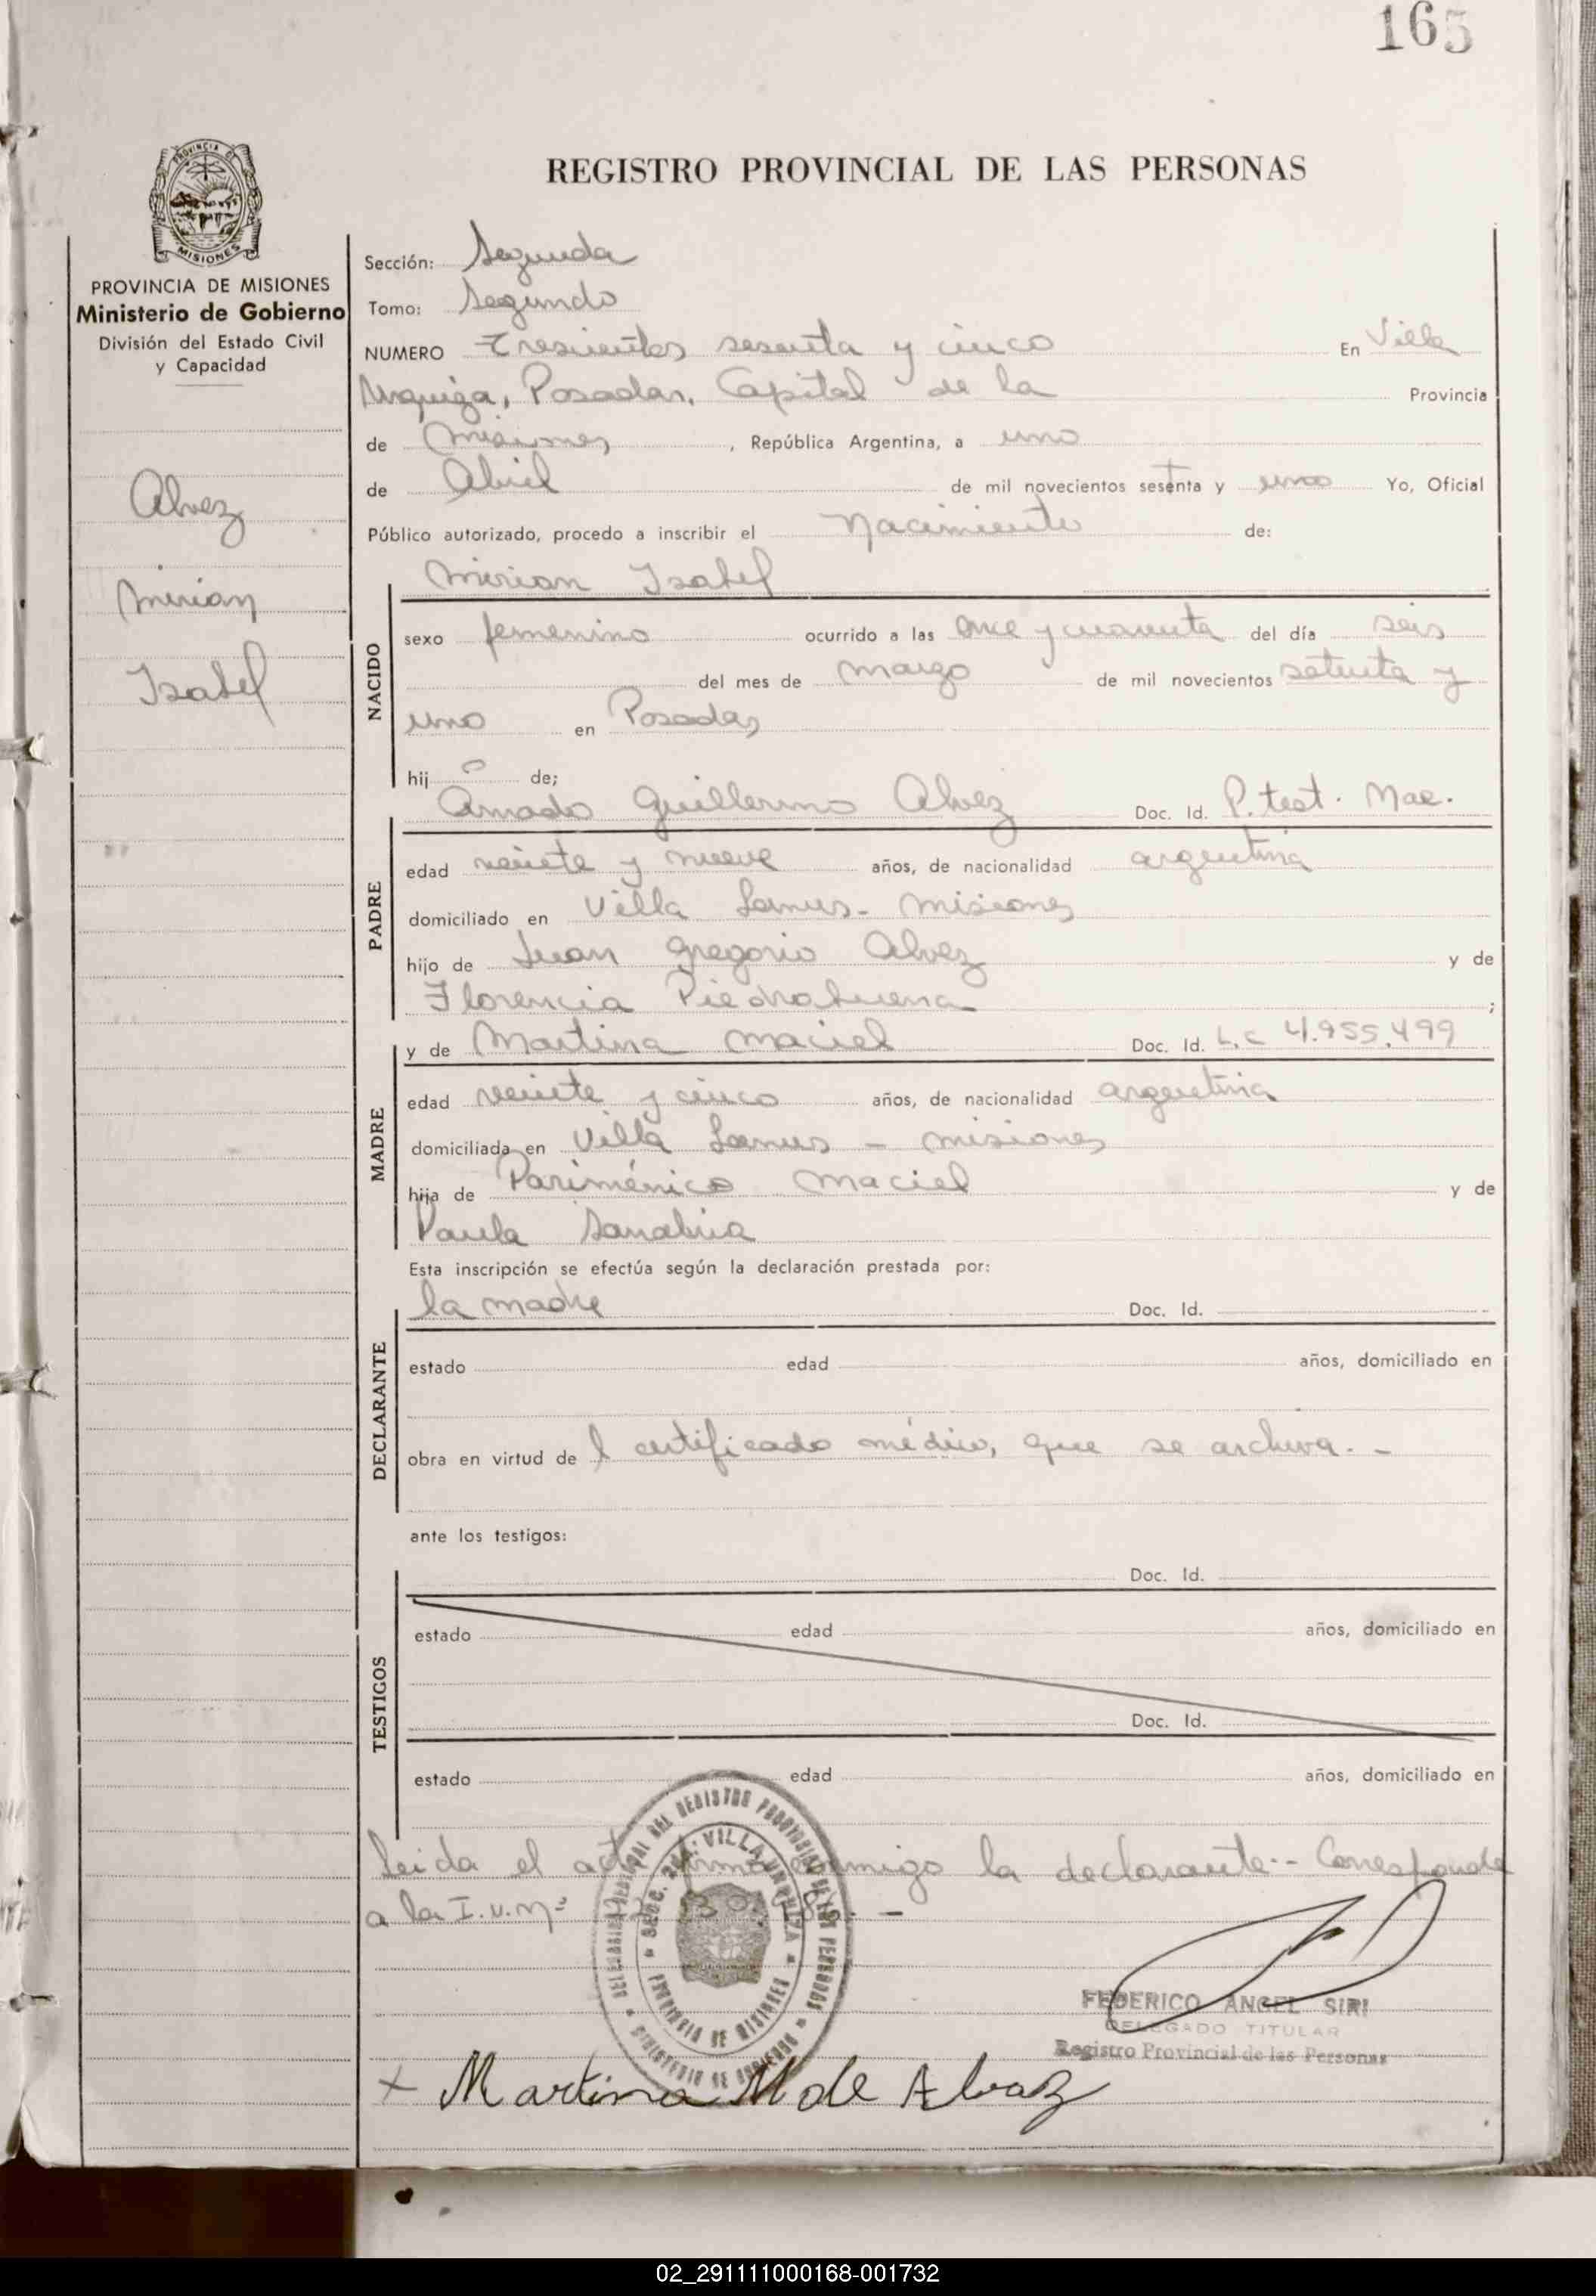 165
REGISTRO PROVINCIAL DE LAS PERSONAS
PROVINCIA DE
MISIONES
PROVINCIA DE MISIONES
Ministerio de Gobierno
División del Estado Civil
y Capacidad
Alvez
Mirian
Isabel
Sección: Segunda
Tomo: Segundo
NUMERO Trescientos sesenta y cinco En Villa
Urquiza, Posadas, Capital de la Provincia
de Misiones, República Argentina, a uno
de Abril de mil novecientos sesenta y uno Yo, Oficial
Público autorizado, procedo a inscribir el Nacimiento de:
Mirian Isabel
NACIDO
sexo femenino ocurrido a las once y cuarenta del día seis
del mes de marzo de mil novecientos setenta y
uno en Posadas
hij de;
PADRE
Amado Guillermo Alvez Doc. Id. P. test. Mae.
edad veinte y nueve años, de nacionalidad argentina
domiciliado en Villa Lanus - Misiones
hijo de Juan Gregorio Alvez y de
Florencia Piedrabuena ;
MADRE
y de Martina Maciel Doc. Id. L.C 4.955.499
edad veinte y cinco años, de nacionalidad argentina
domiciliada en Villa Lanus - Misiones
hija de Pariménico Maciel y de
Paula Sanabria
Esta inscripción se efectúa según la declaración prestada por:
DECLARANTE
la madre Doc. Id.
estado edad años, domiciliado en
obra en virtud de l certificado médico, que se archiva. -
ante los testigos:
TESTIGOS
Doc. Id.
estado edad años, domiciliado en
Doc. Id.
estado edad años, domiciliado en
Leida el acta firma conmigo la declarante.- Corresponde
a la I.u.Nº
SECC. 2da. VILLA URQUIZA
PROVINCIA DE MISIONES
MINISTERIO DE GOBIERNO
FEDERICO ANGEL SIRI
DELEGADO TITULAR
Registro Provincial de las Personas
x Martina M de Alvaz
02_291111000168-001732